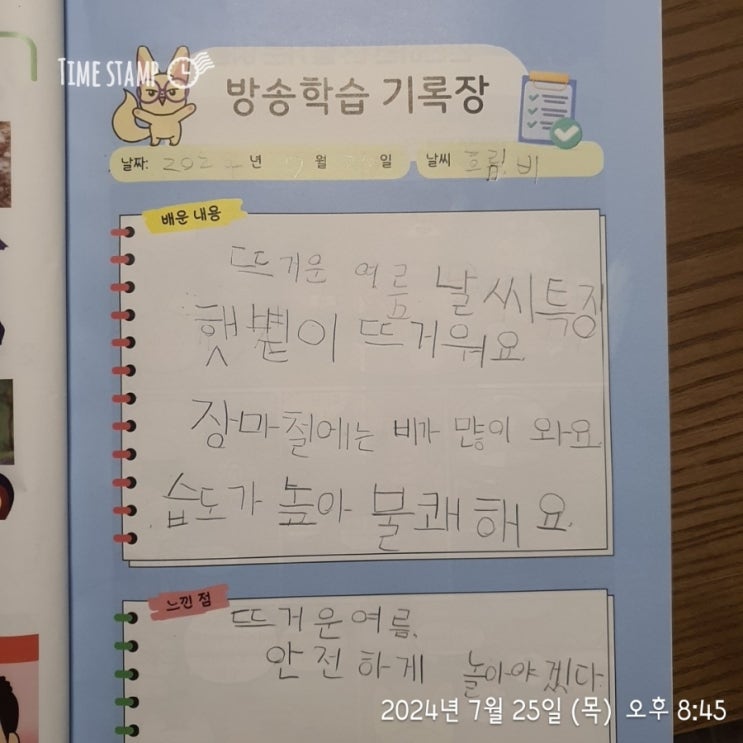 TIME STAMP
방송학습 기록장
날짜: 202 년 월 일 날씨 흐림, 비
배운 내용
뜨거운 여름 날씨특징
햇볕이 뜨거워요
장마철에는 비가 많이 와요.
습도가 높아 불쾌해요.
느낀 점
뜨거운여름,
안전하게 놀아야겠다.
2024년 7월 25일 (목) 오후 8:45